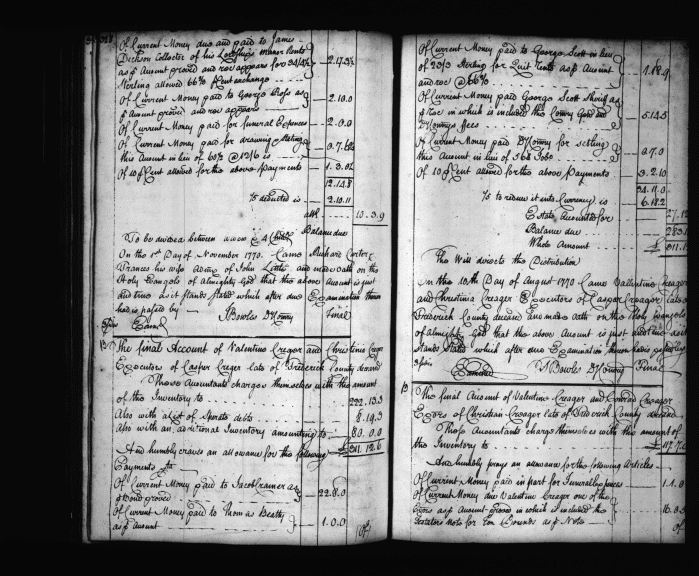 Of Current Money due and paid to James
Dickson Collector of his Lordships manor Rents
as p Amount proved and rec.t appears for 34/4¾ 2.17.3½
Sterling allowed 66⅔ p Cent exchange
Of Current Money paid to George Ross as
p Amount proved and rec.t appears 2.10.0
Of Current Money paid for funeral Expences 2.0.0
Of Current Money paid for drawing & Stating
this Amount in lieu of 60 @ 12/6 is 0.7.6
Of 10 p Cent allowed for the above payments 1.3.0
12.14.8
To deducted is 2.10.11
10.3.9
Balance due
To be divided between widow & 4 Child.n
On the 1st Day of November 1770. Came Richard Carter &
Frances his wife Adm.x of John Little and made Oath on the
Holy Evangels of Almighty God that the above Account is just
and true as it stands stated which after due Examination thereon
had is passed by J Bowles D Comry Final
Exam.d
The final Account of Valentine Creger and Christine Creger
Executors of Casper Creger late of Frederick County deceased
These Accountants charges themselves with the amount
of the Inventory to 222.13.3
Also with a List of Sperate debts 8.14.3
Also with an additional Inventory amounting to 80.0.0
£ 311.12.6
And humbly craves an allowance for the following
Payments
Of Current Money paid to Jacob Cramer as
p Bond proved 22.8.0
Of Current Money paid to Thomas Beatty
as p Amount 1.0.0
Of
Of Current Money paid to George Scott in lieu
of 23/3 Sterling for Quit Rents as p Amount
and rec.t @ 66⅔ 1.18.9
Of Current Money paid George Scott Sheriff as
p Rec.t in which is included the County and
D Comrys Fees 5.14.5
Of Current Money paid D Comry for settling
this Amount in lieu of 56 Tobo 0.7.0
Of 10 p Cent allowed for the above payments 3.2.10
34.11.0
To reduce it into Currency is 6.18.2
Estate Accounted for 27.12
Balance due 283.1
Whole Amount £ 311.1
The Will directs the Distribution
On the 18th Day of August 1770 Came Vallentine Creager
and Christina Creager Executors of Casper Creager late of
Frederick County deceased and made oath on the Holy Evangels
of Almighty God that the above Account is just and true as it
stands stated which after due Examination thereon had is passed by
Examined J Bowles D Comry Final
The final Account of Valentine Creager and Conrad Creager
Exors of Christian Creager late of Frederick County deceased
These Accountants charge themselves with the amount of
the Inventory to £ 117.7.
And humbly brings an allowance for the following Articles
Of Current Money paid in part for Funeral Expences 1.1.0
Of Current Money due Valentine Creager one of the
Exors as p Amount proved in which is included the
Testators Note for Ten Pounds as p Note 16.0.3
of